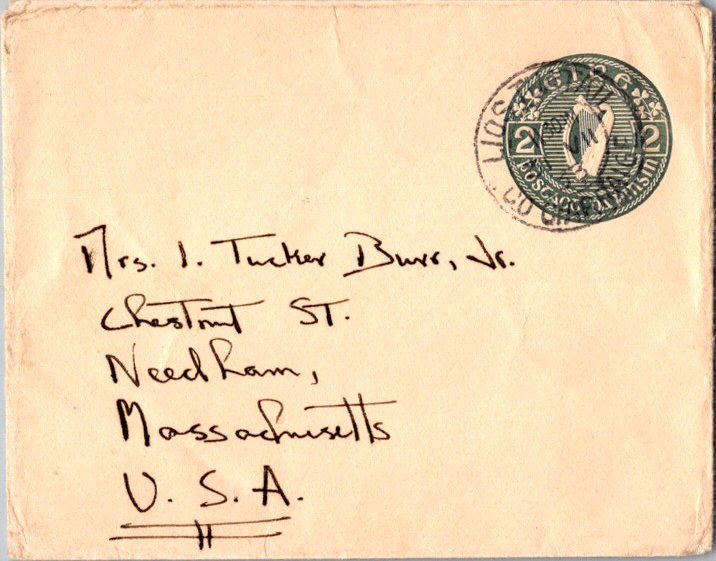 2 2
Mrs. I. Tucker Burr, Jr.
Chestnut St.
Needham,
Massachusetts
U. S. A.